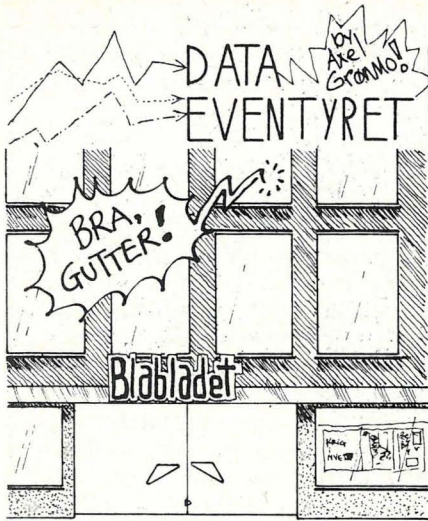 DATA
EVENTYRET
by
Axel
Grønmo!
BRA,
GUTTER!
Blabladet
KRIG
NYE